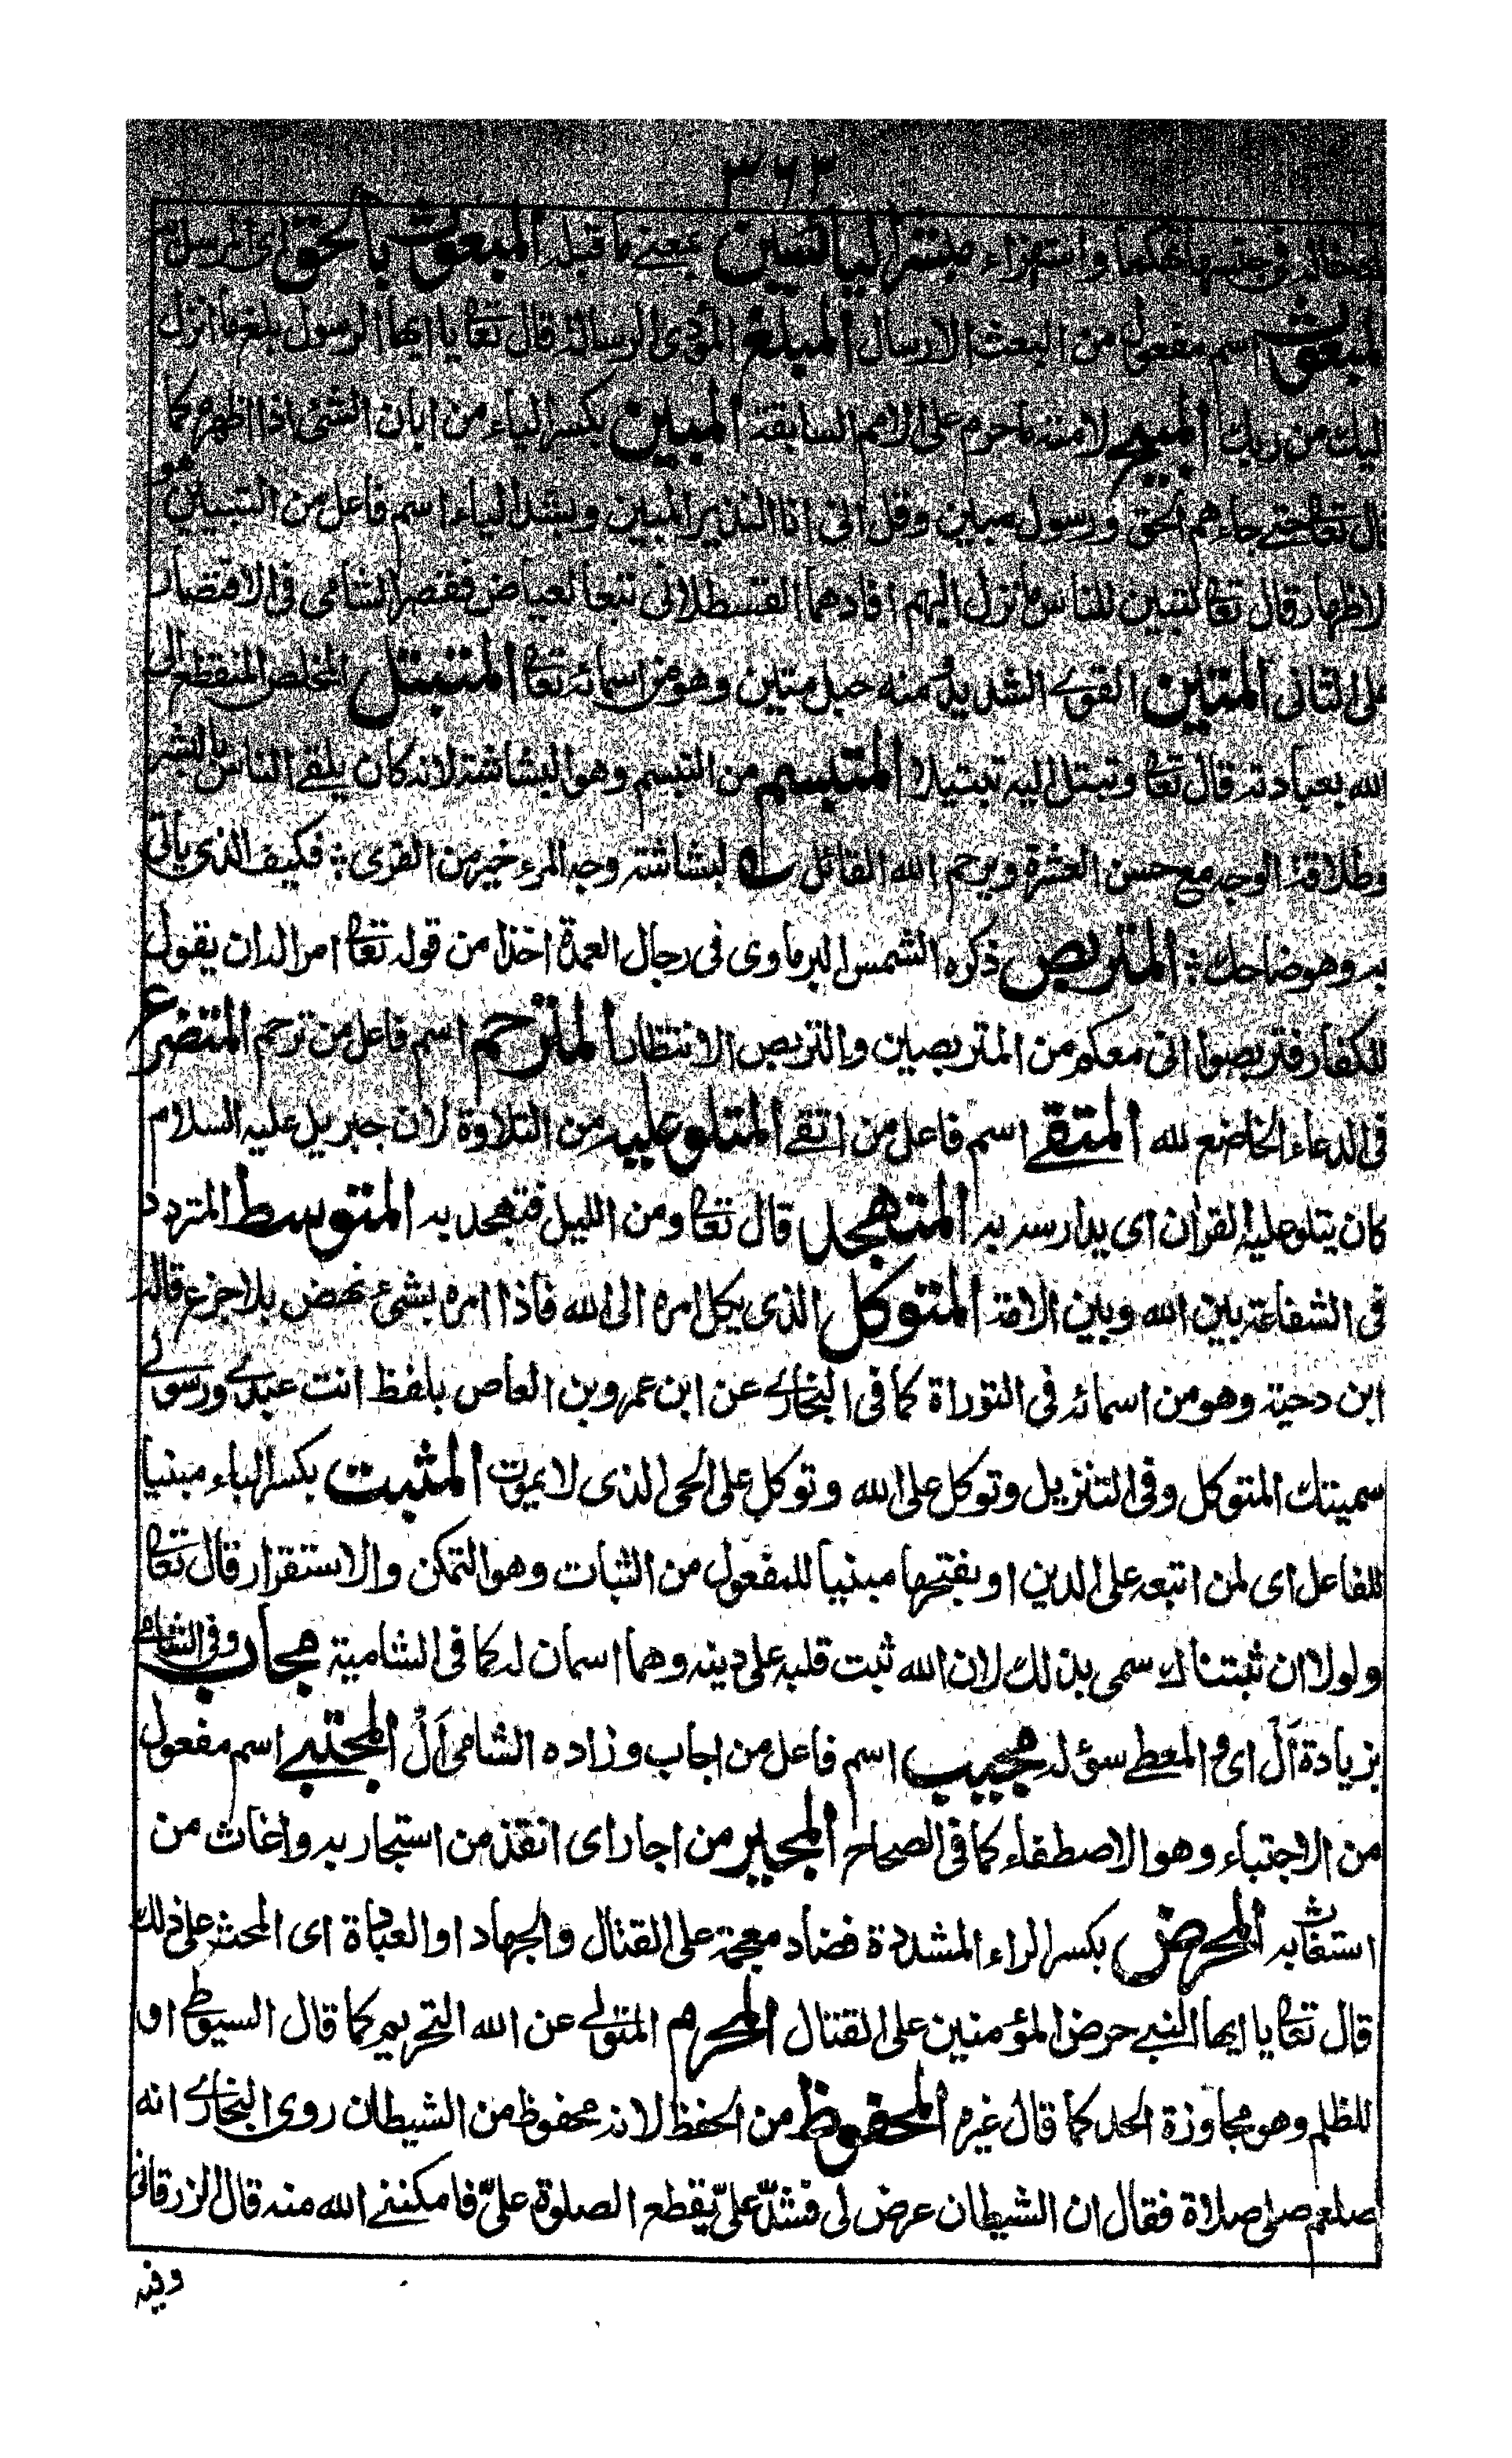 ٣٦٢
واستهزاء مبشر اليائسين بمعنے ما قبله المبعوث بالحق اى المرسل به
المبعوث اسم مفعول من البعث الارسال المبلغ المؤدى الرسالة قال تعا يا ايها الرسول بلغ ما انزل
اليك من ربك المبيح لامته ما حرم على الامم السابقة المبين بكسر الباء من ابان الشئ اذا اظهره كما
قال تعا حتے جاءهم الحق ورسول مبين وقل انى انا النذير المبين وبشد الياء اسم فاعل من التبيين وهو
الاظهار قال تعا لتبين للناس ما نزل اليهم افادهما القسطلانى تبعا لعياض فقصر الشامى فى الاقتصار
على الثانى المتين القوے الشديد منه حبل متين وهو من اسمائه تعا المتبتل المخلص المنقطع الى
الله بعبادته قال تعا وتبتل اليه تبتيلا المتبسم من التبسم وهو البشاشة لانه كان يلقے الناس بالبشر
وطلاقة الوجه مع حسن العشرة ويرحم الله القائل ؎ لبشاشة وجه المرء خير من القرى ؛ فكيف الذى ياتى
به وهو ضاحك ؛ المتربص ذكره الشمس البرماوى فى رجال العمدة اخذا من قوله تعا امرا له ان يقول
للكفار فتربصوا انى معكم من المتربصين والتربص الانتظار المترحم اسم فاعل من ترحم المتضرع
فى الدعاء الخاضع لله المتقے اسم فاعل من اتقے المتلو عليه من التلاوة لان جبريل عليه السلام
كان يتلو عليه القران اى يدارسه به المتهجد قال تعا ومن الليل فتهجد به المتوسط المتردد
فى الشفاعة بين الله وبين الامة المتوكل الذى يكل امره الى الله فاذا امره بشئ نهض بلا جزع قاله
ابن دحية وهو من اسمائه فى التوراة كما فى البخارے عن ابن عمرو بن العاص بلفظ انت عبدے ورسولے
سميتك المتوكل وفى التنزيل وتوكل على الله وتوكل على الحى الذى لا يموت المثبت بكسر الباء مبنيا
للفاعل اى لمن اتبعه على الدين او بفتحها مبنيا للمفعول من الثبات وهو التمكن والاستقرار قال تعا
ولولا ان ثبتناك سمى بذلك لان الله ثبت قلبه على دينه وهما اسمان له كما فى الشامية مجاب وفى الشامے
بزيادة اَلْ اى المعطے سؤله مجيب اسم فاعل من اجاب وزاده الشامى اَلْ المجتبے اسم مفعول
من الاجتباء وهو الاصطفاء كما فى الصحاح المجير من اجار اى انقذ من استجار به واغاث من
استغاث به المحرض بكسر الراء المشددة فضاد معجمة على القتال والجهاد او العبادة اى المحث على ذلك
قال تعا يا ايها النبے حرض المؤمنين على القتال المحرم المتولے عن الله التحريم كما قال السيوطے او
للظلم وهو مجاوزة الحد كما قال غيره المحفوظ من الحفظ لانه محفوظ من الشيطان روى البخارے انه
صلعم صلى صلاة فقال ان الشيطان عرض لى فشدّ علىّ يقطع الصلوة علىّ فامكننے الله منه قال الزرقانى
وفيه